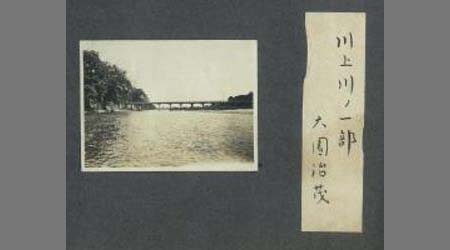 川上川ノ一部
大園治茂